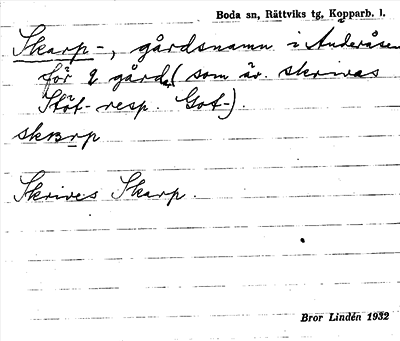 Boda sn, Rättviks tg, Kopparb. l.
Skarp-, gårdsnamn i Anderåsen
för 2 gårdar (som äv. skrivas
Stöt- resp. Got-).
skarp
Skrives Skarp.
Bror Lindén 1932